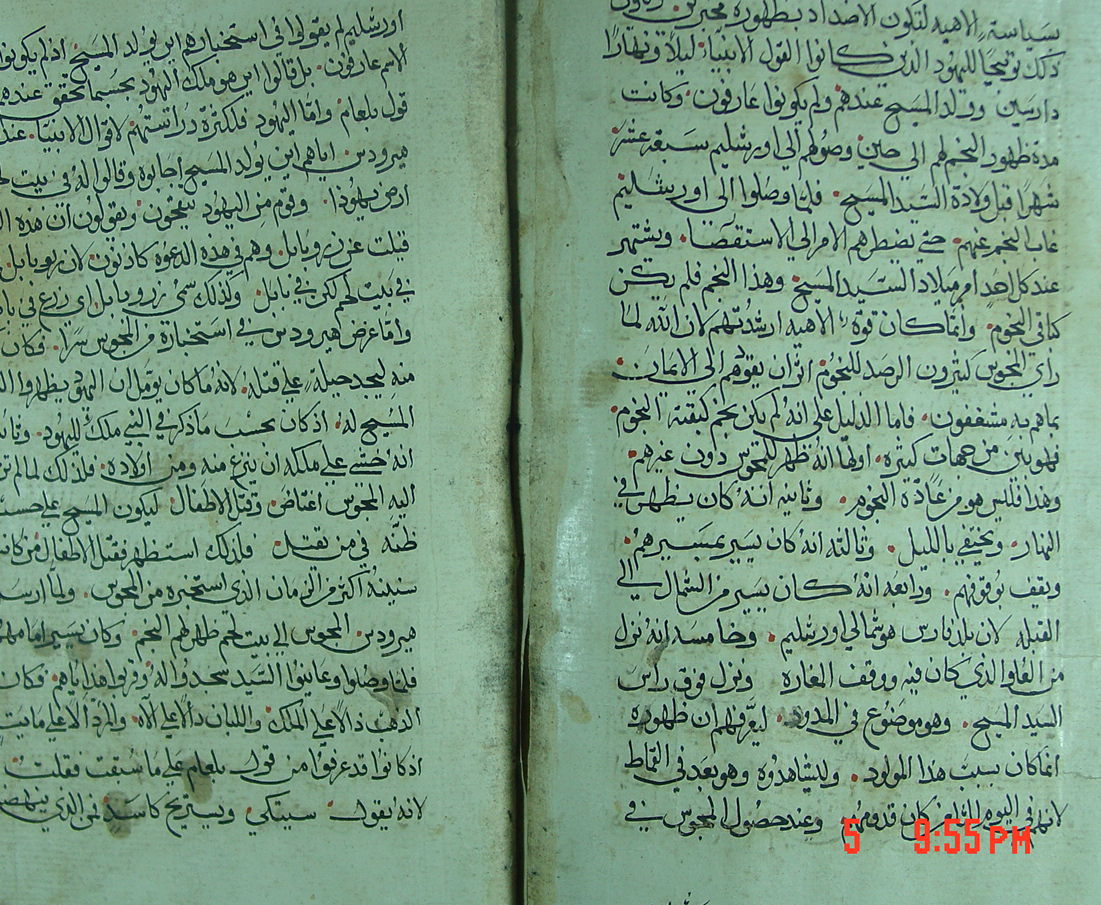 سياسة الاهيه لتكون الاضداد بظهوره مخبرين
ذلك توبيخا لليهود الذين كانوا القول الانبيا ليلا ونهارا
دارسين وولد المسيح عندهم ولم يكونوا عارفون وكانت
مدة ظهور النجم لهم الي حين وصولهم الي اورشليم سبعة عشر
شهرا قبل ولادة السيد المسيح فلما وصلوا الى اورشليم
غاب النجم عنهم حتي يضطرهم الامر الي الاستقصا ويشتهر
عند كل احد امر ميلاد السيد المسيح وهذا النجم فلم يكن
كباقي النجوم وانما كان قوة الاهيه ارشدتهم لان الله لما
راي المجوس كثيرون الرصد للنجوم اثر ان يقودهم الي الايمان
بماهم به مشغفون فاما الدليل علي انه لم يكن نجم كبقية النجوم
فهو بين من جهات كثيره اولها انه ظهر للمجوس دون غيرهم
وهذا فليس هو من عادة النجوم وثانيه انه كان يظهر في
النهار ويختفي بالليل وثالثه انه كان يسير بمسيرهم
ويقف بوقوفهم ورابعه انه كان يسير من الشمال الي
القبله لان بلد فارس هو شمالي اورشليم وخامسه انه نزل
من العلو الذي كان فيه ووقف المغاره ونزل فوق راس
السيد المسيح وهو موضوع في المدود ليعرفهم ان ظهوره
انما كان بسبب هذا المولود وليشاهدوه وهو بعد في القماط
لانهم في اليوم كان قدومهم وعند حصول المجوس في
اورشليم لم يقولوا في استخبارهم اين يولد المسيح اذ لم يكونوا
الاسم عارفون بل قالوا اين هو ملك اليهود بحسبما تحقق عندهم
قول بلعام واما اليهود فلكثرة دراستهم لاقوال الانبيا
هيرودس اياهم اين يولد المسيح اجابوه وقالوا له في بيت
ارض يهوذا وقوم من اليهود يتقحون ويقولون ان هذه
قيلت عن زروبابل وهم في هذه الدعوه كاذبون لان زروبابل
في بيت لحم لكن في بابل وكذلك سمي زروبابل اي زرع في
واما غرض هيرودس في استخباره من المجوس سرا فكان
منه ليجد حيلة علي قتله لانه ما كان يومل ان اليهود يظهروا
المسيح له اذ كان بحسب ما ذكر في النبي ملك لليهود
انه خشي علي ملكه ان ينزع منه ومن اولاده فلذلك لما لم
اليه المجوس اغتاض وقتل الاطفال ليكون المسيح علي حسب
ظنه في من يقتل فلذلك استظهر فقتل الاطفال من
سنينه اكثر من الزمان الذي استخبره من المجوس ولما ارسل
هيرودس المجوس الي بيت لحم ظهر لهم النجم وكان يسير امامهم
فلما وصلوا وعاينوا السيد سجدوا له وقربوا هداياهم فكان
الذهب دالا علي الملك واللبان دالا علي الاله والمر دالا علي مايت
اذ كانوا قد عرفوا من قول بلعام علي ما سبقت فقلت
لانه يقول سيتكي ويستريح كاسد فمن الذي
5 9:55 PM